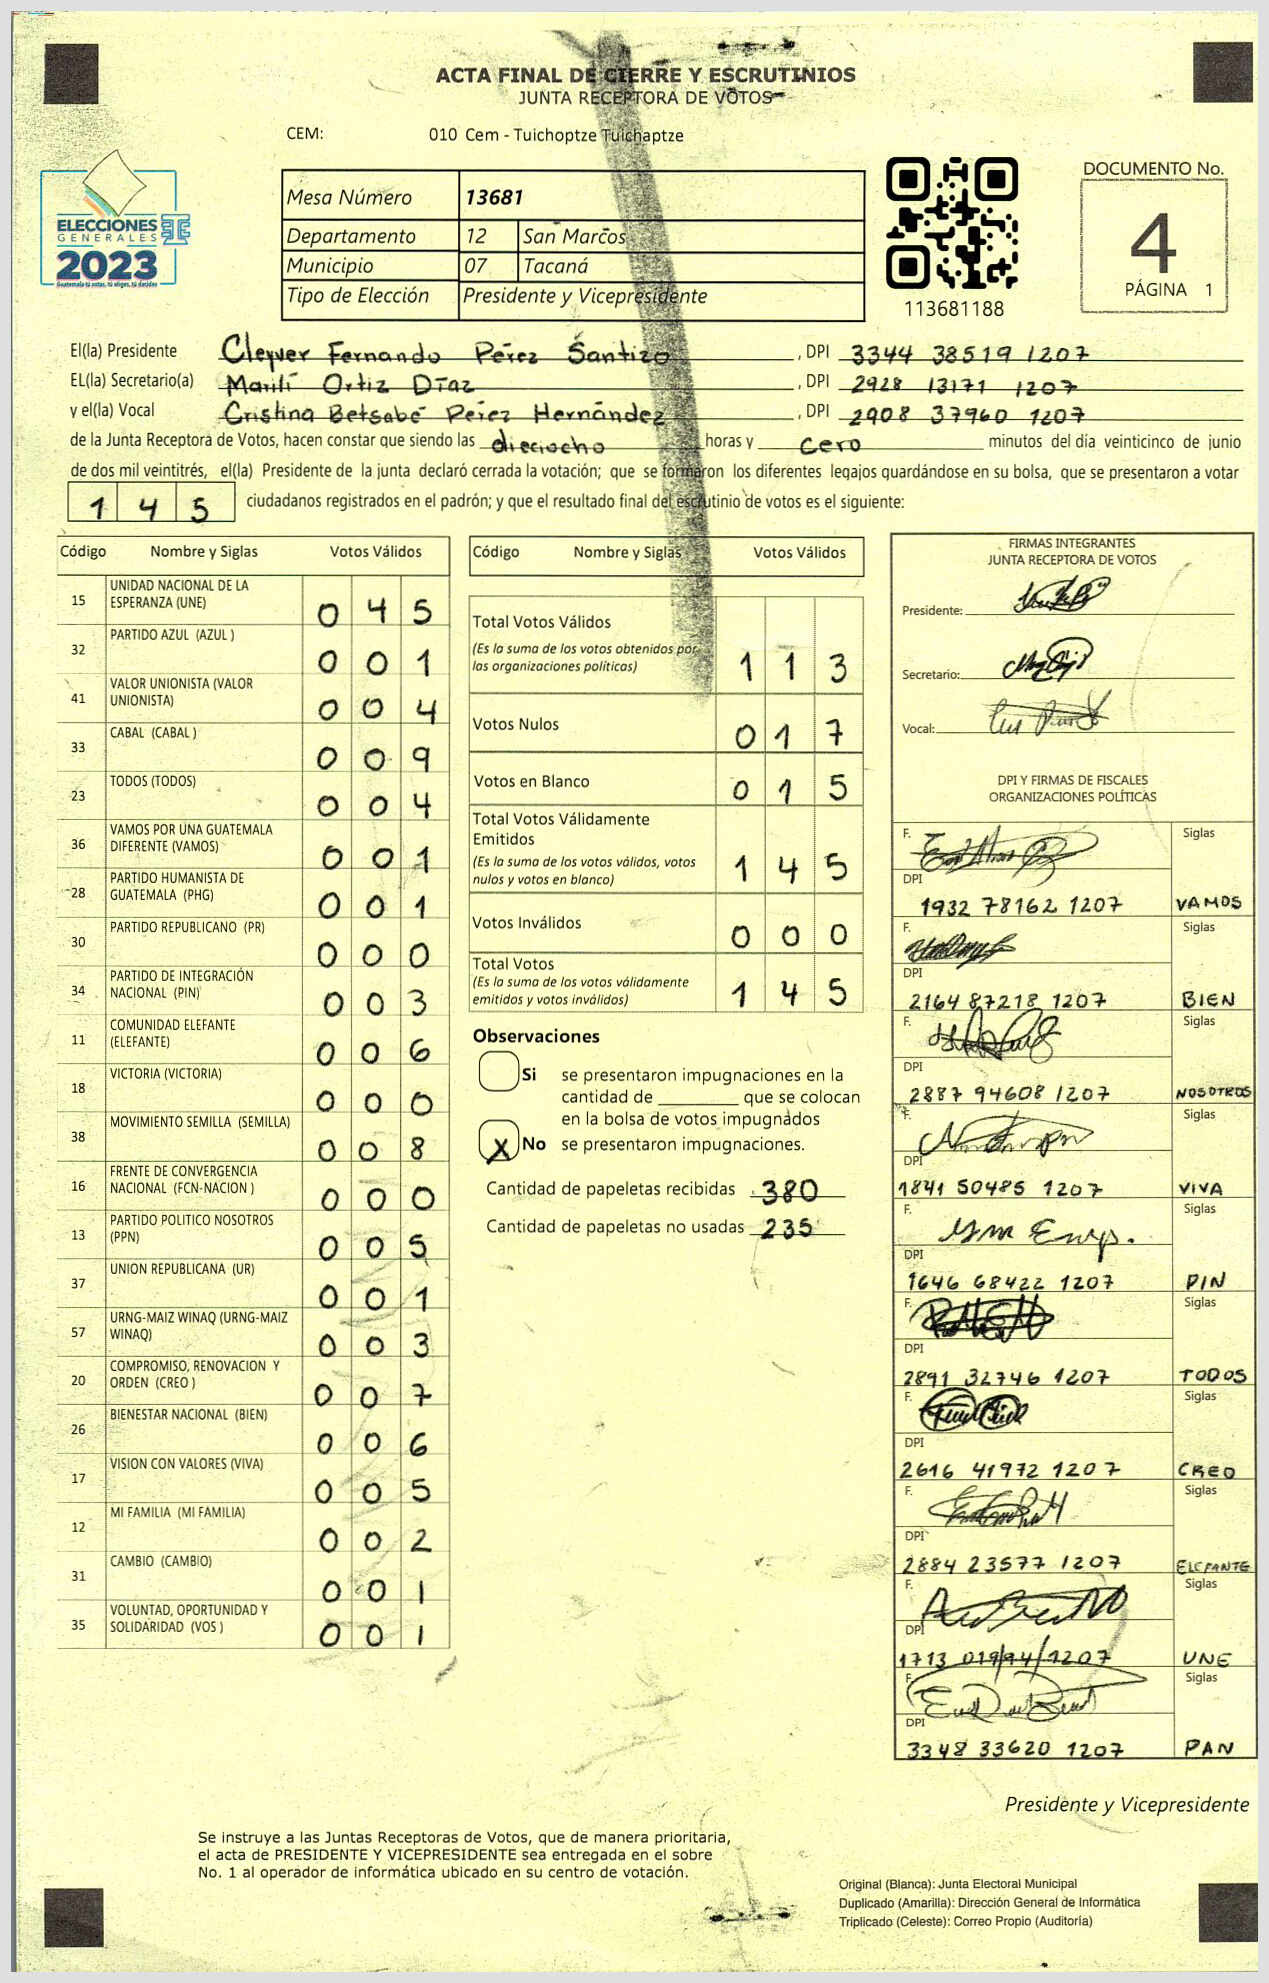 ACTA FINAL DE CIERRE Y ESCRUTINIOS
JUNTA RECEPTORA DE VOTOS
CEM: 010 Cem - Tuichoptze Tuichaptze
ELECCIONES
GENERALES
2023
Guatemala tú votas, tú eliges, tú decides
Mesa Número 13681
Departamento 12 San Marcos
Municipio 07 Tacaná
Tipo de Elección Presidente y Vicepresidente
113681188
DOCUMENTO No.
4
PÁGINA 1
El(la) Presidente Cleyver Fernando Pérez Santizo, DPI 3344 38519 1207
EL(la) Secretario(a) Marilí Ortiz Díaz, DPI 2928 13171 1207
y el(la) Vocal Cristina Betsabé Pérez Hernández, DPI 2908 37960 1207
de la Junta Receptora de Votos, hacen constar que siendo las dieciocho horas y cero minutos del día veinticinco de junio
de dos mil veintitrés, el(la) Presidente de la junta declaró cerrada la votación; que se formaron los diferentes legajos guardándose en su bolsa, que se presentaron a votar
145 ciudadanos registrados en el padrón; y que el resultado final del escrutinio de votos es el siguiente:
Código Nombre y Siglas Votos Válidos
15 UNIDAD NACIONAL DE LA ESPERANZA (UNE) 045
32 PARTIDO AZUL (AZUL ) 001
41 VALOR UNIONISTA (VALOR UNIONISTA) 004
33 CABAL (CABAL ) 009
23 TODOS (TODOS) 004
36 VAMOS POR UNA GUATEMALA DIFERENTE (VAMOS) 001
28 PARTIDO HUMANISTA DE GUATEMALA (PHG) 001
30 PARTIDO REPUBLICANO (PR) 000
34 PARTIDO DE INTEGRACIÓN NACIONAL (PIN) 003
11 COMUNIDAD ELEFANTE (ELEFANTE) 006
18 VICTORIA (VICTORIA) 000
38 MOVIMIENTO SEMILLA (SEMILLA) 008
16 FRENTE DE CONVERGENCIA NACIONAL (FCN-NACION ) 000
13 PARTIDO POLITICO NOSOTROS (PPN) 005
37 UNION REPUBLICANA (UR) 001
57 URNG-MAIZ WINAQ (URNG-MAIZ WINAQ) 003
20 COMPROMISO, RENOVACION Y ORDEN (CREO ) 007
26 BIENESTAR NACIONAL (BIEN) 006
17 VISION CON VALORES (VIVA) 005
12 MI FAMILIA (MI FAMILIA) 002
31 CAMBIO (CAMBIO) 001
35 VOLUNTAD, OPORTUNIDAD Y SOLIDARIDAD (VOS ) 001
Código Nombre y Siglas Votos Válidos
Total Votos Válidos 113
(Es la suma de los votos obtenidos por
las organizaciones políticas)
Votos Nulos 017
Votos en Blanco 015
Total Votos Válidamente
Emitidos 145
(Es la suma de los votos válidos, votos
nulos y votos en blanco)
Votos Inválidos 000
Total Votos 145
(Es la suma de los votos válidamente
emitidos y votos inválidos)
Observaciones
Si se presentaron impugnaciones en la
cantidad de ________ que se colocan
en la bolsa de votos impugnados
X No se presentaron impugnaciones.
Cantidad de papeletas recibidas 380
Cantidad de papeletas no usadas 235
FIRMAS INTEGRANTES
JUNTA RECEPTORA DE VOTOS
Presidente:
Secretario:
Vocal:
DPI Y FIRMAS DE FISCALES
ORGANIZACIONES POLÍTICAS
F. Siglas
DPI
1932 78162 1207 VAMOS
F. Siglas
DPI
2164 87218 1207 BIEN
F. Siglas
DPI
2887 94608 1207 NOSOTROS
F. Siglas
DPI
1841 50485 1207 VIVA
F. Siglas
DPI
1646 68422 1207 PIN
F. Siglas
DPI
2891 32746 1207 TODOS
F. Siglas
DPI
2616 41972 1207 CREO
F. Siglas
DPI
2884 23577 1207 ELEFANTE
F. Siglas
DPI
1713 01994 1207 UNE
F. Siglas
DPI
3348 33620 1207 PAN
Presidente y Vicepresidente
Se instruye a las Juntas Receptoras de Votos, que de manera prioritaria,
el acta de PRESIDENTE Y VICEPRESIDENTE sea entregada en el sobre
No. 1 al operador de informática ubicado en su centro de votación.
Original (Blanca): Junta Electoral Municipal
Duplicado (Amarilla): Dirección General de Informática
Triplicado (Celeste): Correo Propio (Auditoría)